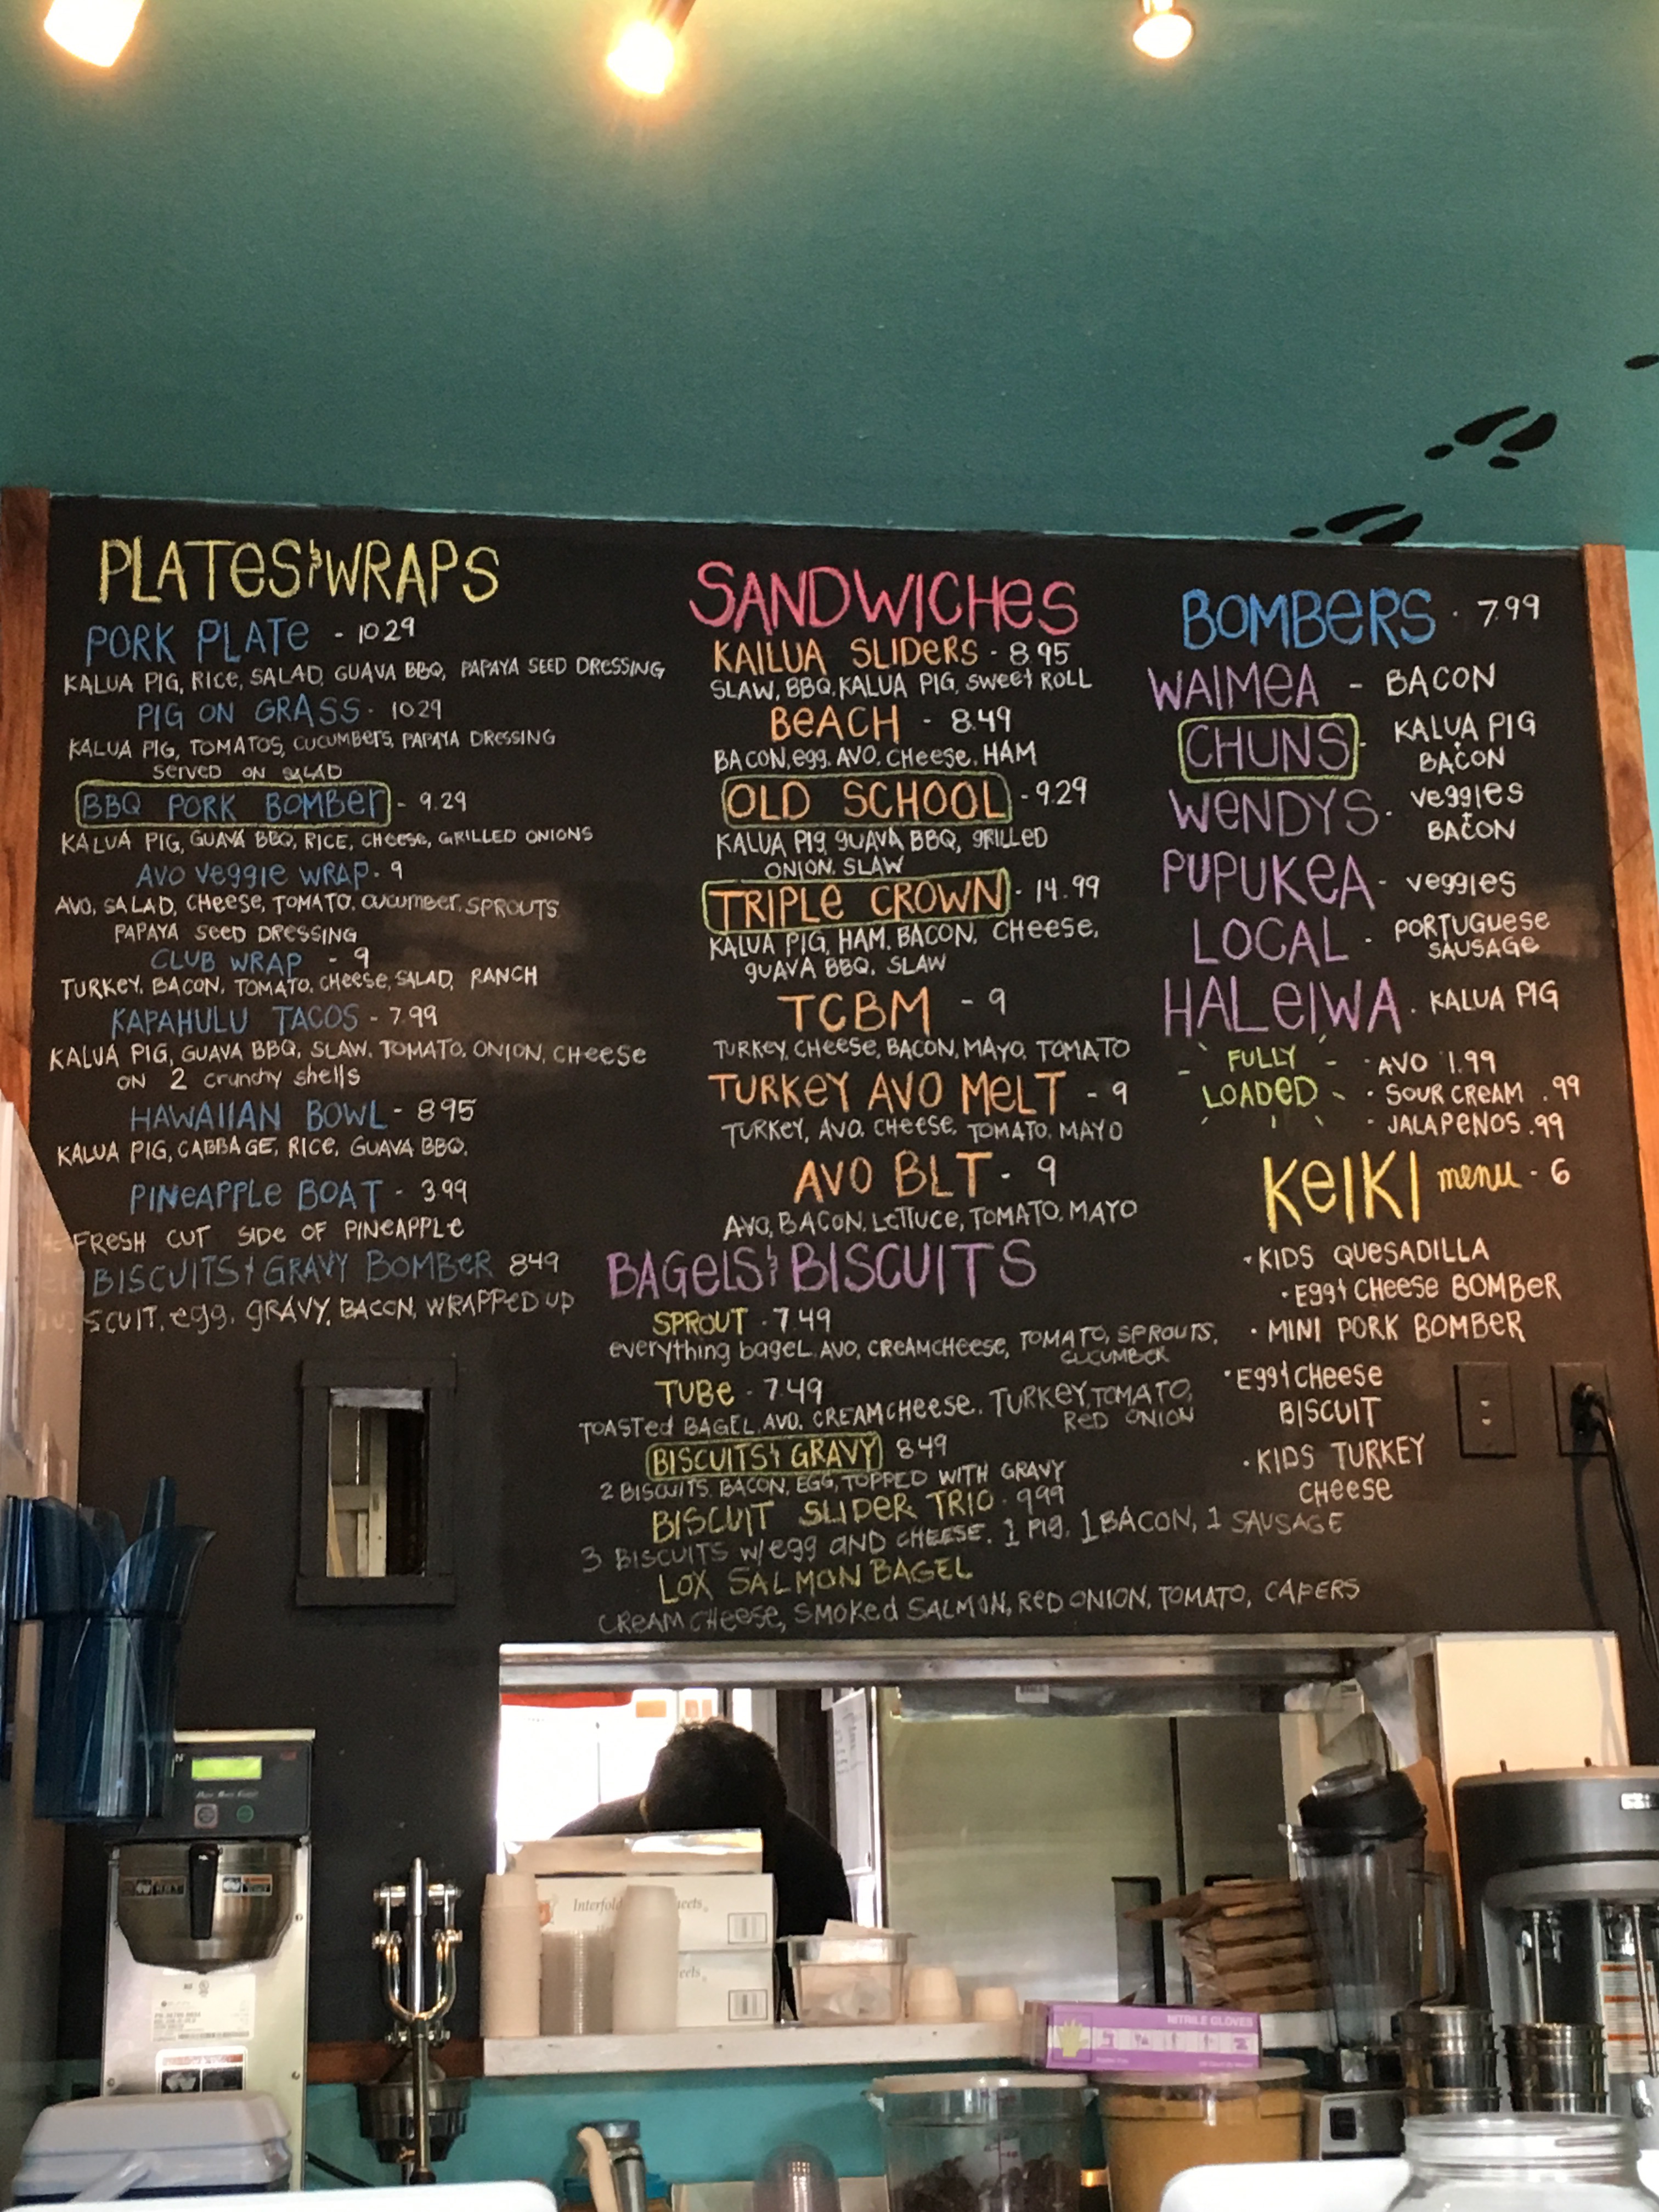 PLATES & WRAPS
PORK PLATE - 10 29
KALUA PIG, RICE, SALAD, GUAVA BBQ, PAPAYA SEED DRESSING
PIG ON GRASS - 10 29
KALUA PIG, TOMATOS, CUCUMBERS, PAPAYA DRESSING
SERVED ON SALAD
BBQ PORK BOMBER - 9.29
KALUA PIG, GUAVA BBQ, RICE, CHEESE, GRILLED ONIONS
AVO VEGGIE WRAP - 9
AVO, SALAD, CHEESE, TOMATO, CUCUMBER, SPROUTS
PAPAYA SEED DRESSING
CLUB WRAP - 9
TURKEY, BACON, TOMATO, CHEESE, SALAD, RANCH
KAPAHULU TACOS - 7.99
KALUA PIG, GUAVA BBQ, SLAW, TOMATO, ONION, CHEESE
ON 2 crunchy shells
HAWAIIAN BOWL - 8 95
KALUA PIG, CABBAGE, RICE, GUAVA BBQ.
PINEAPPLE BOAT - 3.99
FRESH CUT SIDE OF PINEAPPLE
BISCUITS & GRAVY BOMBER 8 49
SCUIT, egg, GRAVY, BACON, WRAPPED UP
SANDWICHES
KAILUA SLIDERS - 8 95
SLAW, BBQ, KALUA PIG, SWEET ROLL
BEACH - 8.49
BACON, egg, AVO, CHEESE, HAM
OLD SCHOOL - 9.29
KALUA PIG, GUAVA BBQ, GRILLED
ONION, SLAW
TRIPLE CROWN - 14.99
KALUA PIG, HAM, BACON, CHEESE,
GUAVA BBQ, SLAW
TCBM - 9
TURKEY, CHEESE, BACON, MAYO, TOMATO
TURKEY AVO MELT - 9
TURKEY, AVO, CHEESE, TOMATO, MAYO
AVO BLT - 9
AVO, BACON, LETTUCE, TOMATO, MAYO
BAGELS & BISCUITS
SPROUT - 7.49
everything bagel, AVO, CREAMCHEESE, TOMATO, SPROUTS,
CUCUMBER
TUBE - 7.49
TOASTED BAGEL, AVO, CREAMCHEESE, TURKEY, TOMATO,
RED ONION
BISCUITS & GRAVY 8 49
2 BISCUITS, BACON, EGG, TOPPED WITH GRAVY
BISCUIT SLIDER TRIO - 9.99
3 BISCUITS w/egg AND CHEESE. 1 PIG, 1 BACON, 1 SAUSAGE
LOX SALMON BAGEL
CREAM CHEESE, SMOKED SALMON, RED ONION, TOMATO, CAPERS
BOMBERS - 7.99
WAIMEA - BACON
CHUNS - KALUA PIG
& BACON
WENDYS - VEGGIES
& BACON
PUPUKEA - VEGGIES
LOCAL - PORTUGUESE
SAUSAGE
HALEIWA - KALUA PIG
FULLY
LOADED
- AVO 1.99
- SOUR CREAM .99
- JALAPENOS .99
KEIKI menu - 6
- KIDS QUESADILLA
- EGG & CHEESE BOMBER
- MINI PORK BOMBER
- EGG & CHEESE
BISCUIT
- KIDS TURKEY
CHEESE
NITRILE GLOVES